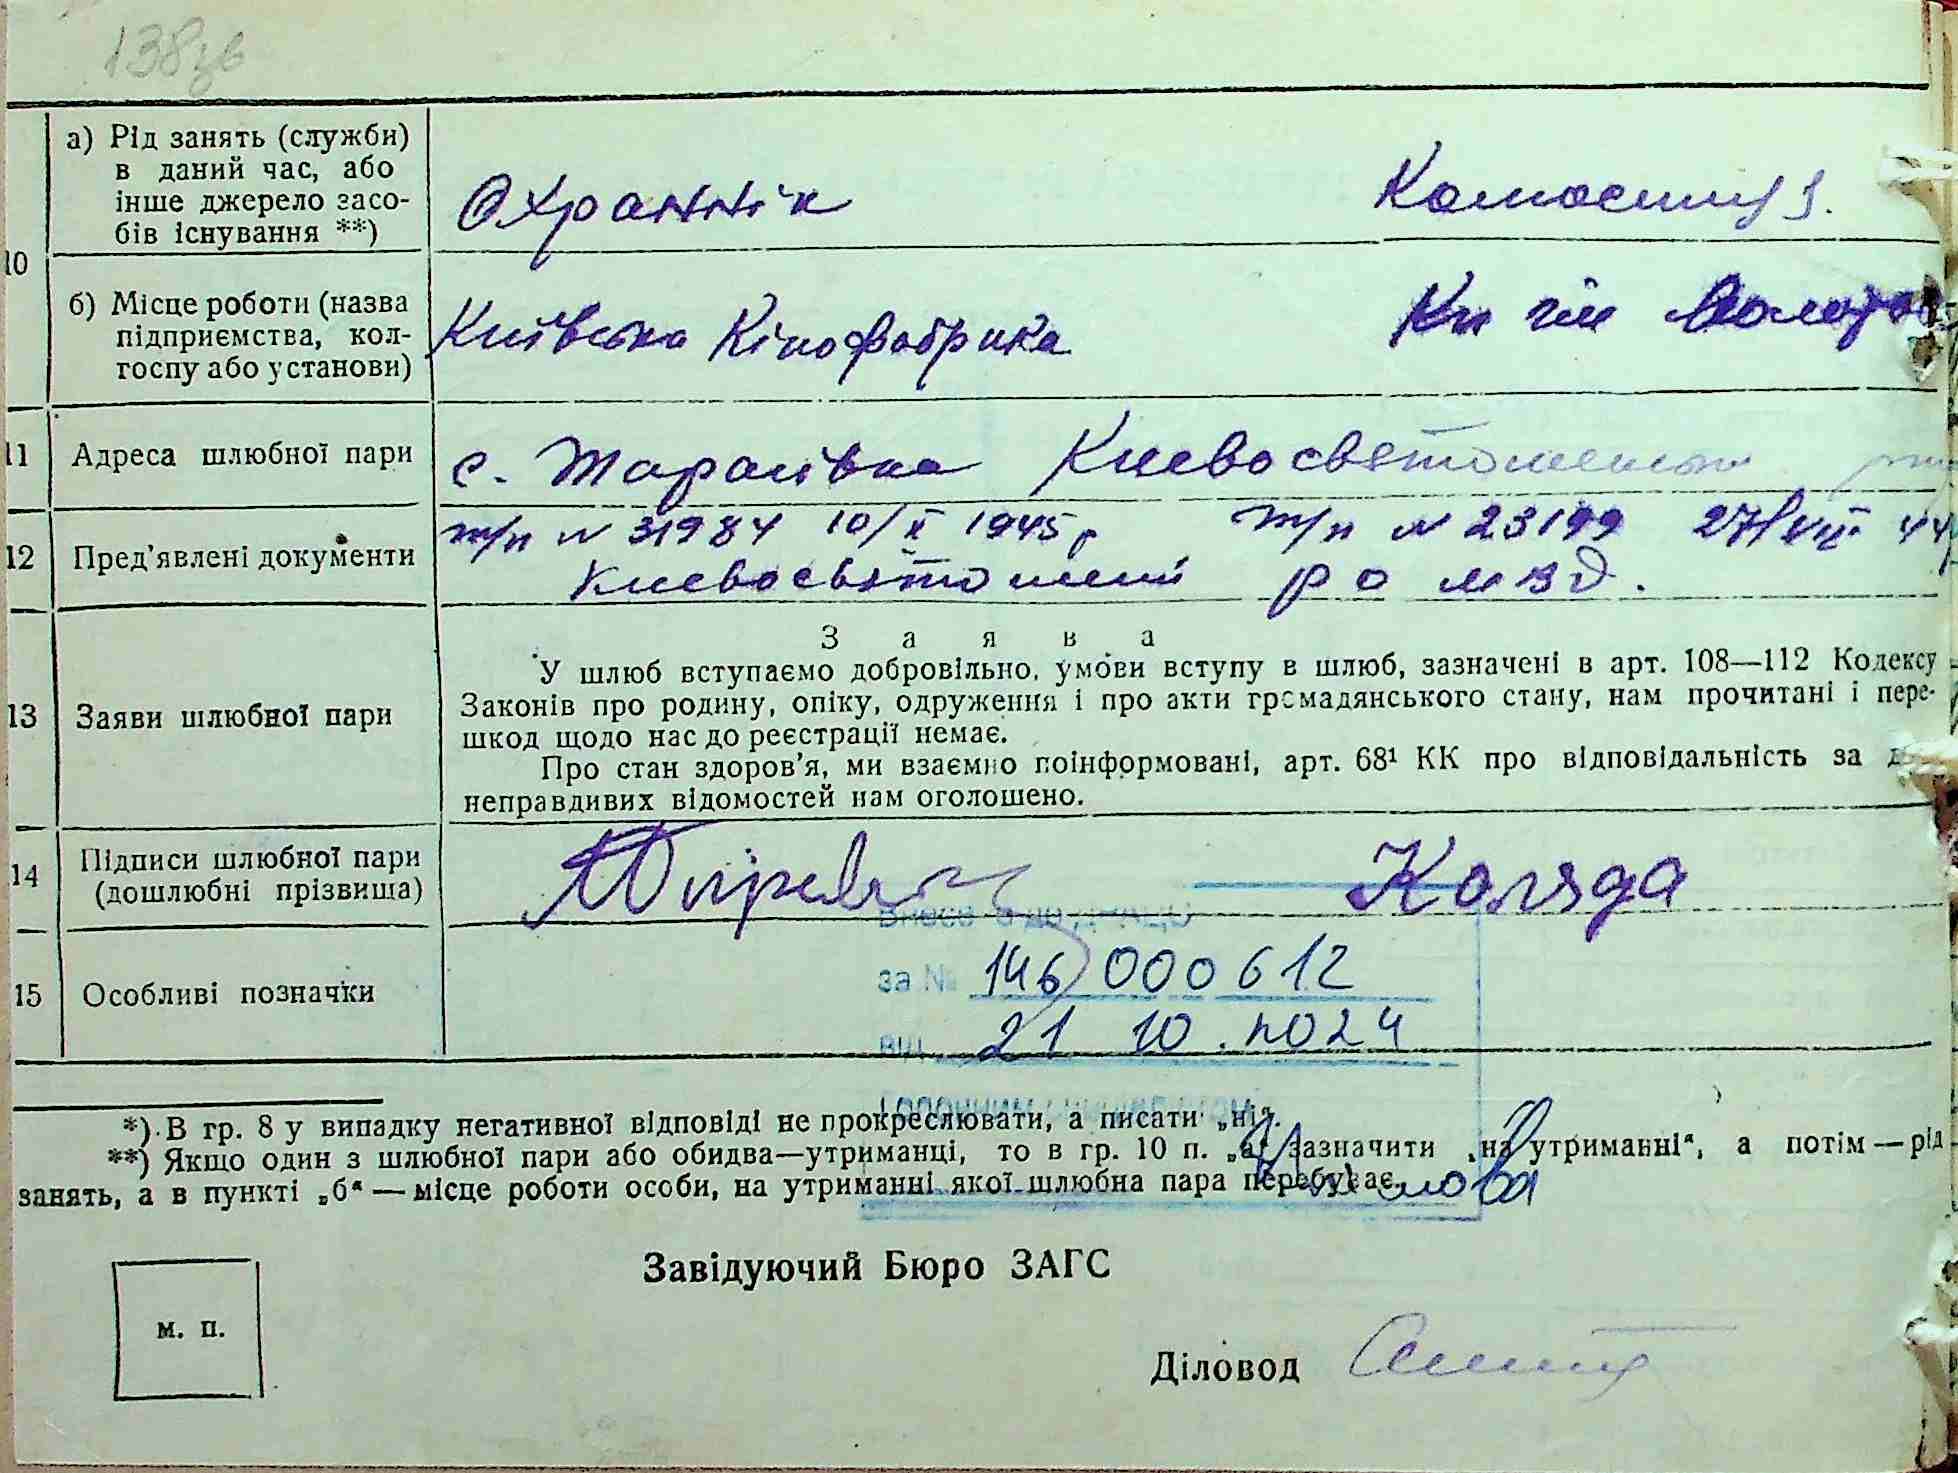 138зв
а) Рід занять (служби)
в даний час, або
інше джерело засо-
бів існування **)
Охраннік
10
б) Місце роботи (назва
підприємства, кол-
госпу або установи)
Київська Кінофабрика
11 Адреса шлюбної пари
с. Тарасівка Киевосвятошенськ
12 Пред’явлені документи
т/п № 31984 10/X 1945р т/п № 23199 27/VII 44
Киевосвятошені РО МВД.
13 Заяви шлюбної пари
Заява
У шлюб вступаємо добровільно, умови вступу в шлюб, зазначені в арт. 108—112 Кодексу
Законів про родину, опіку, одруження і про акти громадянського стану, нам прочитані і пере-
шкод щодо нас до реєстрації немає.
Про стан здоров’я, ми взаємно поінформовані, арт. 68¹ КК про відповідальність за
неправдивих відомостей нам оголошено.
14 Підписи шлюбної пари
(дошлюбні прізвища)
Коляда
15 Особливі позначки
за № 146 000612
від 21 10. 2024
*) В гр. 8 у випадку негативної відповіді не прокреслювати, а писати „ні“.
**) Якщо один з шлюбної пари або обидва—утриманці, то в гр. 10 п. „а“ зазначити „на утриманні“, а потім — рід
занять, а в пункті „б“ — місце роботи особи, на утриманні якої шлюбна пара перебуває.
Завідуючий Бюро ЗАГС
м. п.
Діловод